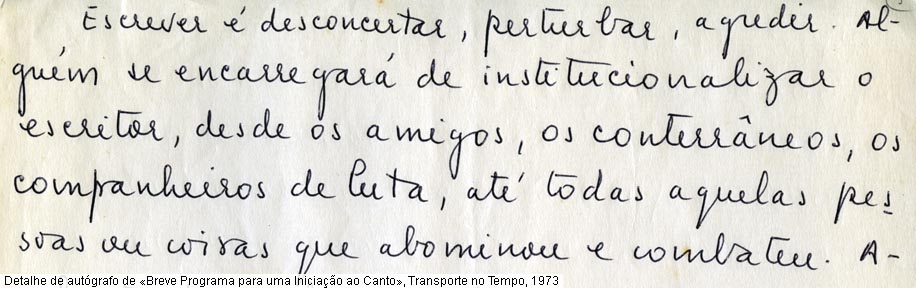 Escrever é desconcertar, perturbar, agredir. Al-
guém se encarregará de institucionalizar o
escritor, desde os amigos, os conterrâneos, os
companheiros de luta, até todas aquelas pes-
soas ou coisas que abominou e combateu. A-
Detalhe de autógrafo de «Breve Programa para uma Iniciação ao Canto», Transporte no Tempo, 1973